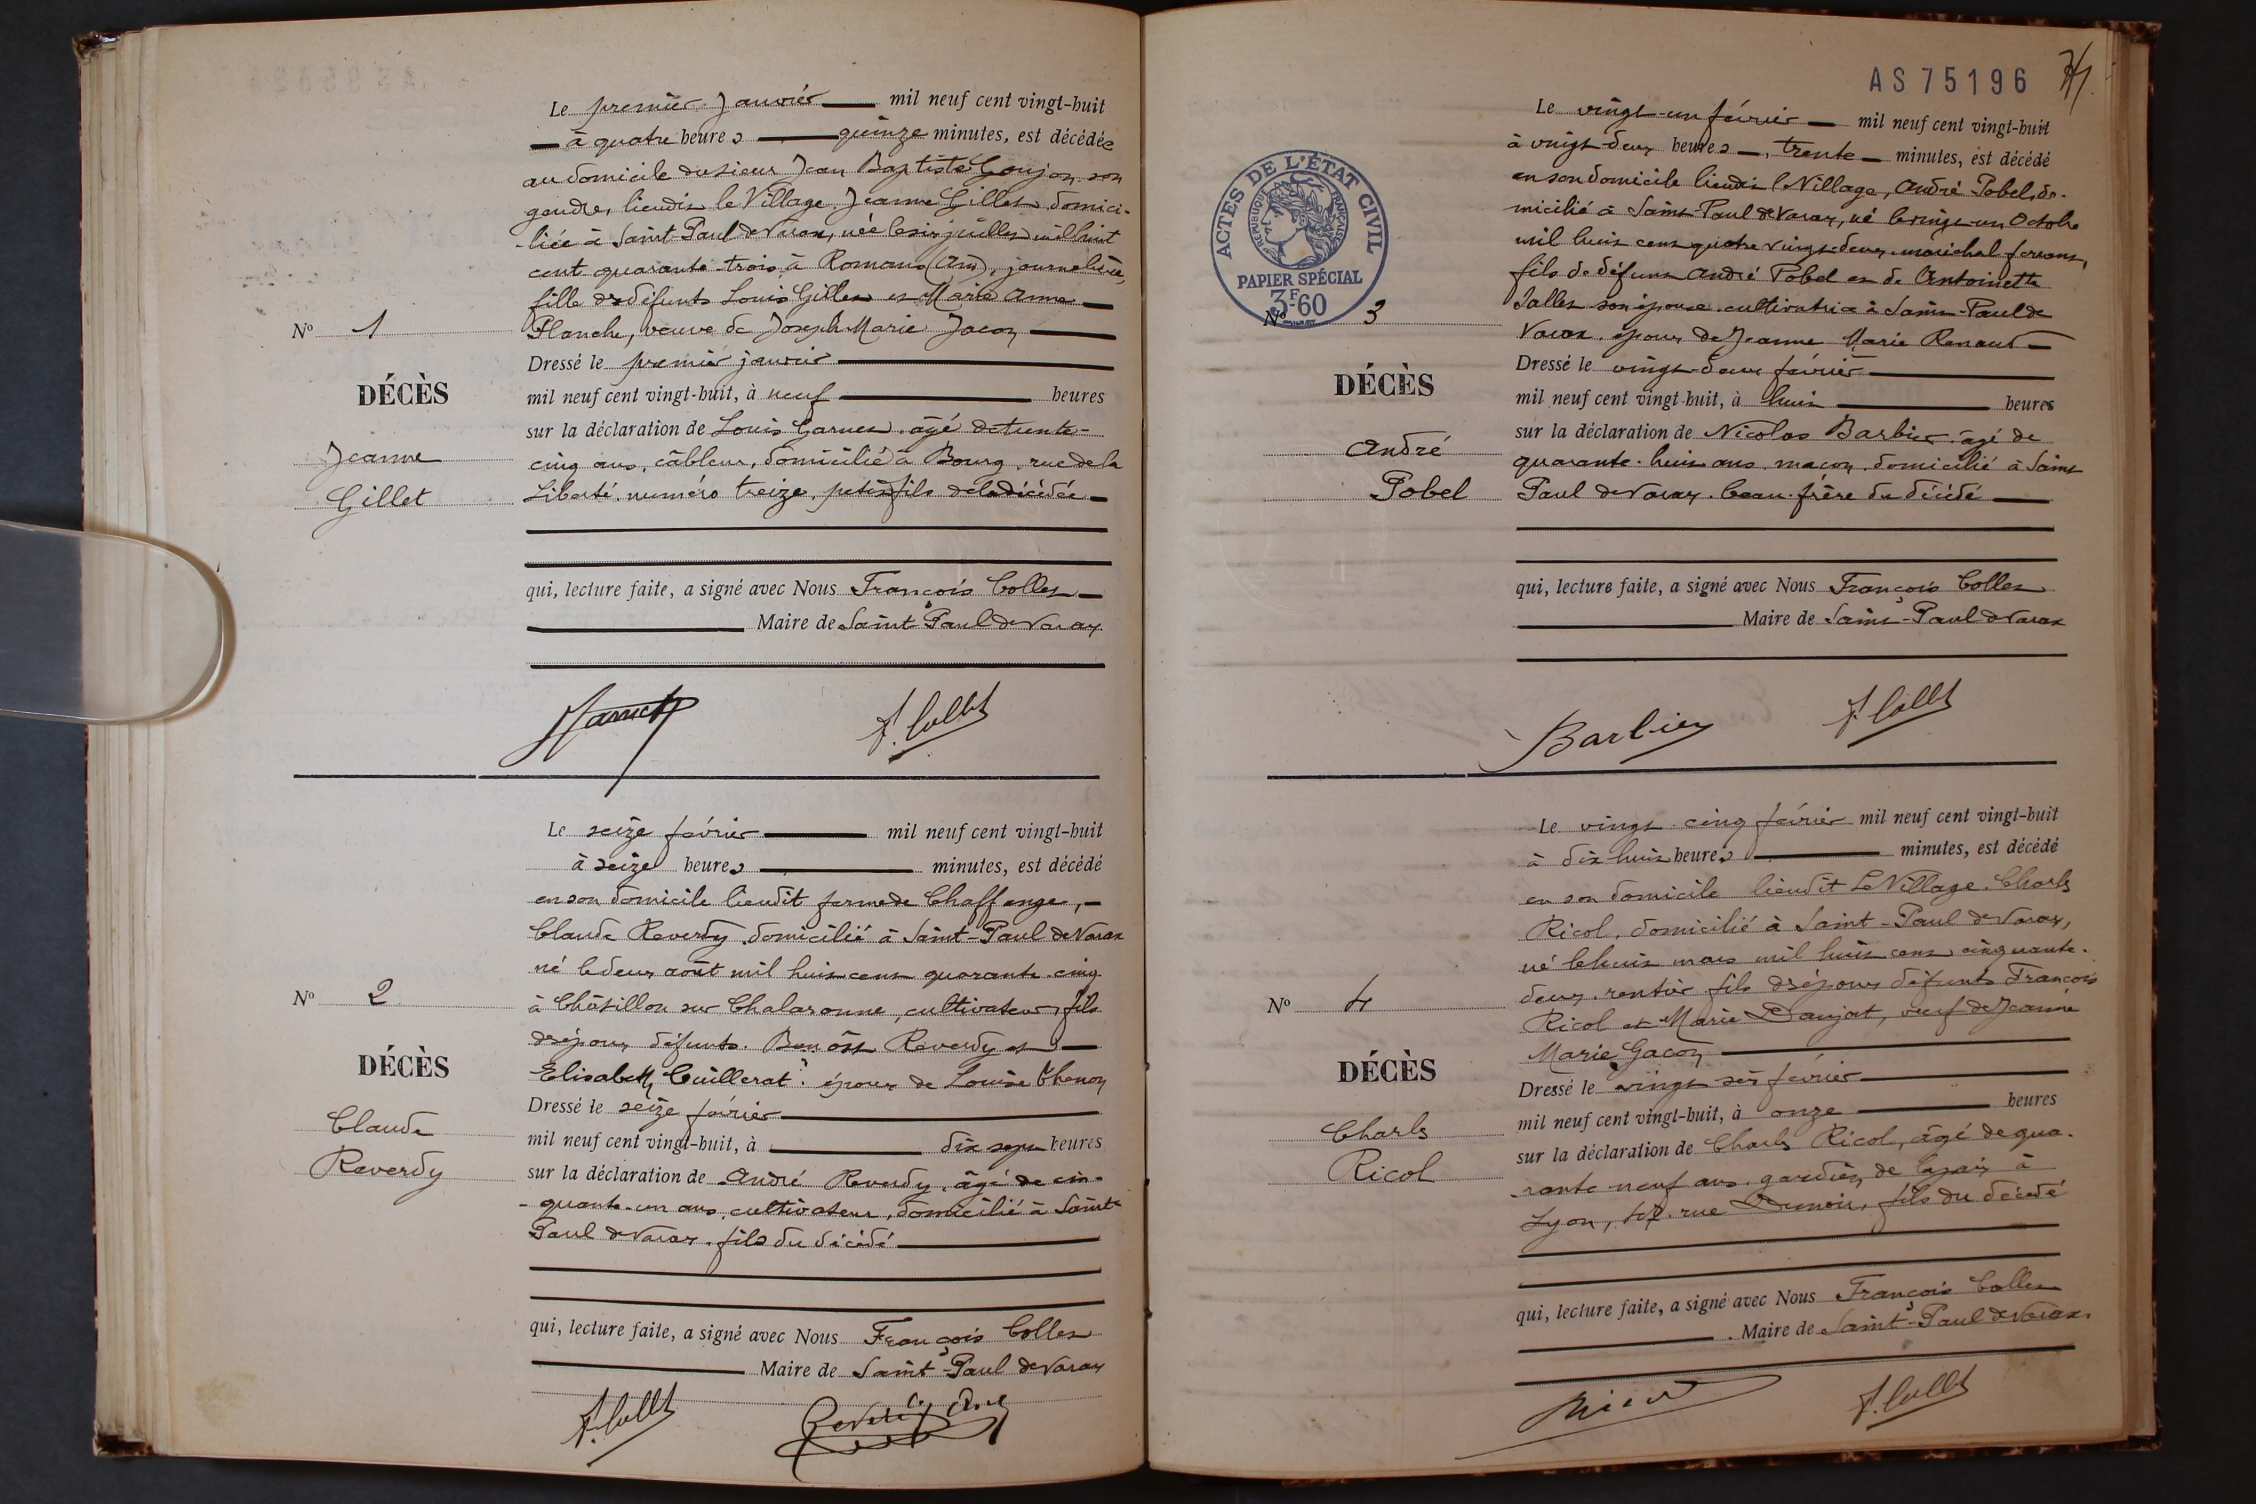 Le premier Janvier mil neuf cent vingt-huit
à quatre heures quinze minutes, est décédée
au domicile du sieur Jean Baptiste Goujon son
gendre, lieudit le Village, Jeanne Gillet domici-
-liée à Saint-Paul de Varax, née le six juillet mil huit
cent quarante trois à Romans (Ain), journalière,
fille de défunts Louis Gillet et Marie Anne
Planche, veuve de Joseph Marie Jacon
Nº 1
DÉCÈS
Jeanne
Gillet
Dressé le premier janvier
mil neuf cent vingt-huit, à neuf heures
sur la déclaration de Louis Garnet, âgé de trente-
cinq ans, câbleur, domicilié à Bourg, rue de la
Liberté, numéro treize, petit fils de la décédée
qui, lecture faite, a signé avec Nous François Collet
Maire de Saint Paul de Varax
F. Collet
Le seize février mil neuf cent vingt-huit
à seize heures minutes, est décédé
en son domicile lieudit ferme de Chaffange,
Claude Reverdy, domicilié à Saint-Paul de Varax
né le deux août mil huit cent quarante-cinq
à Châtillon sur Chalaronne, cultivateur, fils
des époux défunts Benoît Reverdy et
Elisabeth Cuillerat, époux de Louise Chenon
Nº 2
DÉCÈS
Claude
Reverdy
Dressé le seize février
mil neuf cent vingt-huit, à dix sept heures
sur la déclaration de André Reverdy, âgé de cin-
-quante-un ans, cultivateur, domicilié à Saint-
Paul de Varax, fils du décédé
qui, lecture faite, a signé avec Nous François Collet
Maire de Saint-Paul de Varax
F. Collet
AS 75196
ACTES DE L'ÉTAT CIVIL
REPUBLIQUE FRANÇAISE
PAPIER SPÉCIAL
3F60
Le vingt-un février mil neuf cent vingt-huit
à vingt-deux heures, trente minutes, est décédé
en son domicile lieudit le Village, André Pobel, do-
micilié à Saint-Paul de Varax, né le vingt-un Octobre
mil huit cent quatre vingt-deux, maréchal-ferrant,
fils de défunt André Pobel et de Antoinette
Sallet son épouse, cultivatrice à Saint-Paul de
Varax, époux de Jeanne Marie Renaud
Nº 3
DÉCÈS
André
Pobel
Dressé le vingt-deux février
mil neuf cent vingt-huit, à huit heures
sur la déclaration de Nicolas Barbier, âgé de
quarante-huit ans, maçon, domicilié à Saint
Paul de Varax, beau-frère du décédé
qui, lecture faite, a signé avec Nous François Collet
Maire de Saint-Paul de Varax
Barbier F. Collet
Le vingt-cinq février mil neuf cent vingt-huit
à dix-huit heures minutes, est décédé
en son domicile lieudit Le Village, Charles
Ricol, domicilié à Saint-Paul de Varax,
né le huit mars mil huit cent cinquante-
deux, rentier, fils des époux défunts François
Ricol et Marie Danjat, veuf de Jeanne
Marie Gacon
Nº 4
DÉCÈS
Charles
Ricol
Dressé le vingt six février
mil neuf cent vingt-huit, à onze heures
sur la déclaration de Charles Ricol, âgé de qua-
-rante-neuf ans, gardien de la paix à
Lyon, rue Dunoir, fils du décédé
qui, lecture faite, a signé avec Nous François Collet
Maire de Saint-Paul de Varax
F. Collet